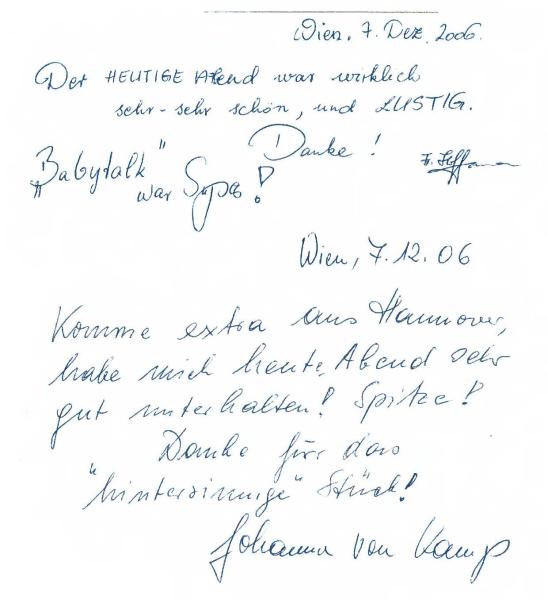 Wien, 7. Dez. 2006.
Der HEUTIGE Abend war wirklich
sehr-sehr schön, und LUSTIG.
Danke!
„Babytalk"
war Super!
Wien, 7.12.06
Komme extra aus Hannover,
habe mich heute Abend sehr
gut unterhalten! Spitze!
Danke für das
"hintersinnige" Stück!
Johanna von Kamp